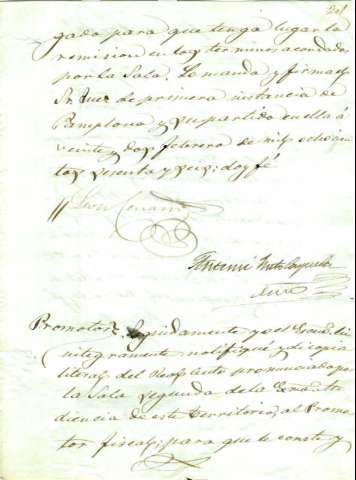 201
gado para que tenga lugar la
remision en los terminos acordados
por la Sala. Lo manda y firma el
Sr. Juez de primera instancia de
Pamplona y su partido en ella á
veinte y dos febrero de mil ochocien
tos sesenta y seis: doy fé
Leon
Antemi
Promotor. Seguidamente yo el Escno. lei
integramente notifiqué y di copia
literal del Real auto pronunciado por
la Sala segunda de la Exma. Au
diencia de este territorio, al Promo
tor fiscal; para que le conste y